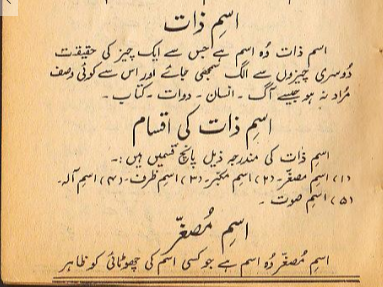 اسمِ ذات
اسم ذات وُہ اسم ہے جس سے ایک چیز کی حقیقت
دُوسری چیزوں سے الگ سمجھی جائے اور اس سے کوئی وصف
مُراد نہ ہو جیسے آگ ۔ انسان ۔ دوات ۔ کتاب ۔
اسمِ ذات کی اقسام
اسمِ ذات کی مندرجہ ذیل پانچ قسمیں ہیں :۔
(۱) اسم مصغّر ۔ (۲) اسم مکبّر ۔ (۳) اسم ظرف ۔ (۴) اسمِ آلہ ۔
(۵) اسمِ صوت ۔
اسمِ مُصغّر
اسمِ مصغّر وُہ اسم ہے جو کسی اسم کی چھوٹائی کو ظاہر